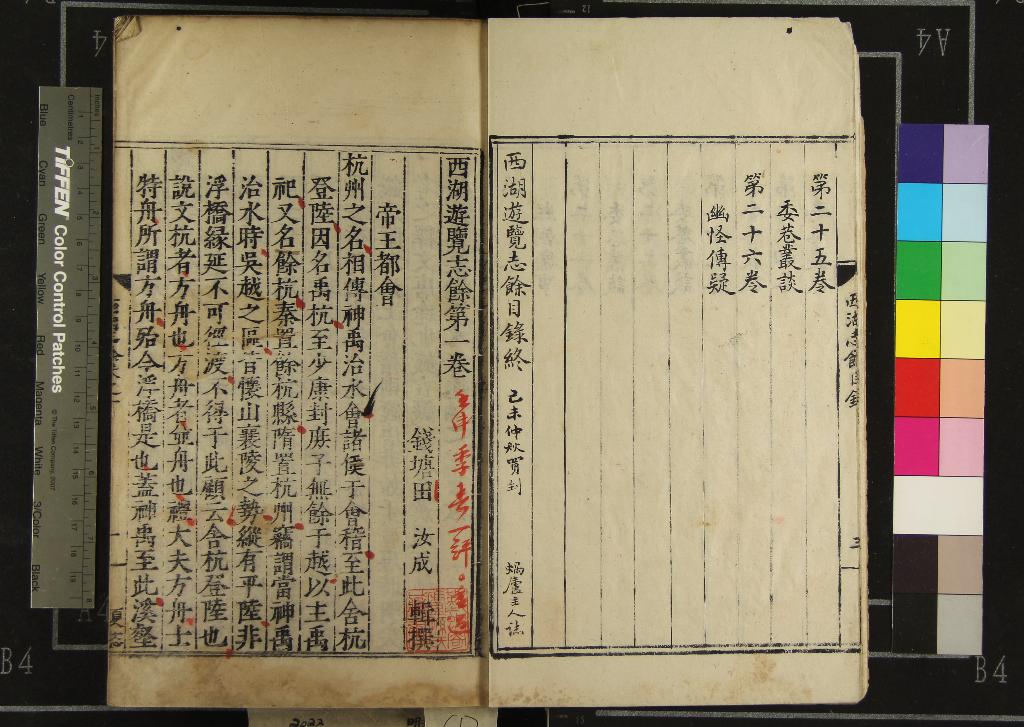 第二十五卷
委巷叢談
第二十六卷
幽怪傳疑
西湖遊覽志餘目錄終 己未仲秋買到 蝸廬主人誌
西湖志餘目錄
三
西湖遊覽志餘第一卷
錢塘田 汝成 輯撰
帝王都會
杭州之名相傳神禹治水會諸侯于會稽至此舍杭
登陸因名禹杭至少康封庶子無餘于越以主禹
祀又名餘杭秦置餘杭縣隋置杭州竊謂當神禹
治水時吳越之區皆懷山襄陵之勢縱有平陸非
浮橋緣延不可徑渡不得于此顧云舍杭登陸也
說文杭者方舟也方舟者並舟也禮大夫方舟士
特舟所謂方舟殆今浮橋是也蓋神禹至此溪壑
一
Inches
Centimetres
TIFFEN Color Control Patches
© The Tiffen Company, 2007
Blue Cyan Green Yellow Red Magenta White 3/Color Black
A4
B4
B4